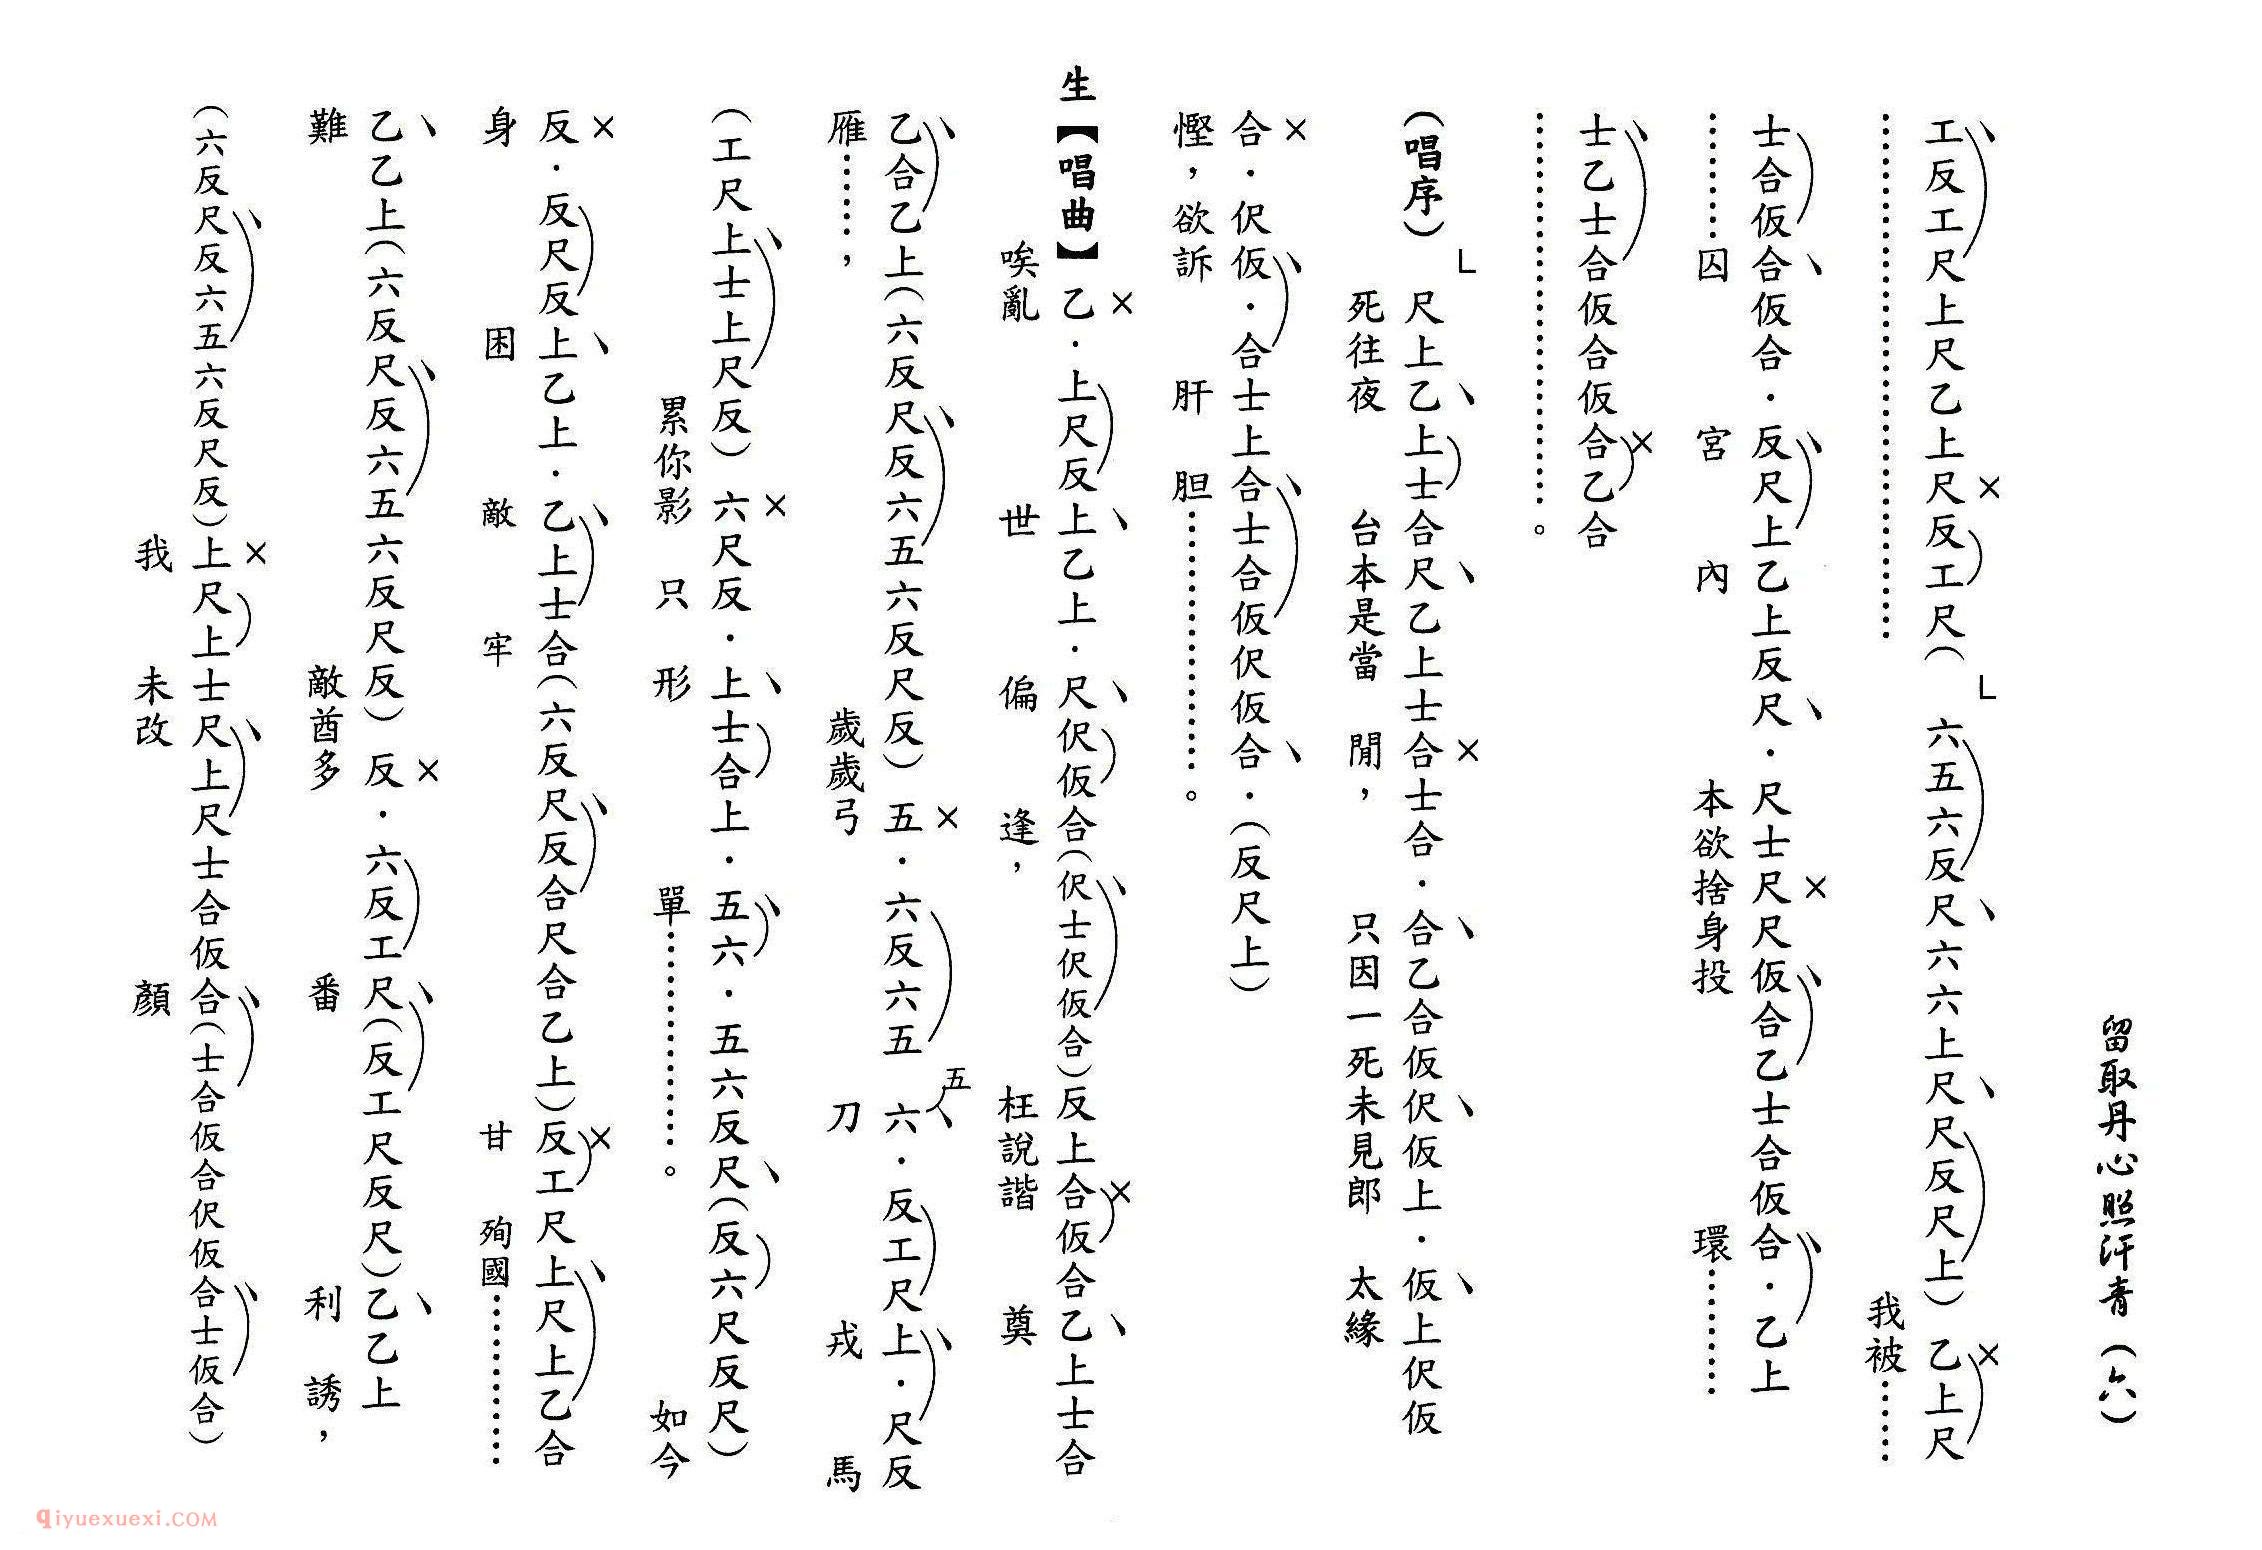 留取丹心照汗青（六）
工反工尺上尺乙上尺反工尺（六五六反尺六六上尺尺反尺上）乙上尺
⋯⋯⋯⋯⋯⋯⋯⋯⋯⋯我被⋯⋯
士合仮合仮合．反尺上乙上反尺．尺士尺尺仮合乙士合仮合．乙上
⋯⋯⋯囚宮內本欲捨身投環⋯⋯⋯
士乙士合仮合仮合乙合
⋯⋯⋯⋯⋯⋯⋯⋯⋯。
（唱序）尺上乙上士合尺乙上士合士合．合乙合仮伬仮上．仮上伬仮
死往夜台本是當閒，只因一死未見郎太緣
合．伬仮．合士上合士合仮伬仮合．（反尺上）
慳，欲訴肝胆⋯⋯⋯⋯⋯⋯。
生【唱曲】乙．上尺反上乙上．尺伬仮合（伬士伬仮合）反上合仮合乙上士合
唉亂世偏逢，枉說諧奠
乙合乙上（六反尺反六五六反尺反）五．六反六五五六．反工尺上．尺反
雁⋯⋯，歲歲弓刀戎馬
（工尺上士上尺反）六尺反．上士合上．五六．五六反尺（反六尺反尺）
累你影只形單⋯⋯⋯⋯⋯。如今
反．反尺反上乙上．乙上士合（六反尺反合尺合乙上）反工尺上尺上乙合
身困敵牢甘殉國⋯⋯⋯⋯
乙乙上（六反尺反六五六反尺反）反．六反工尺（反工尺反尺）乙乙上
難敵酋多番利誘，
（六反尺反六五六反尺反）上尺上士尺上尺士合仮合（士合仮合伬仮合士仮合）
我未改顏
qiyuexuexi.COM